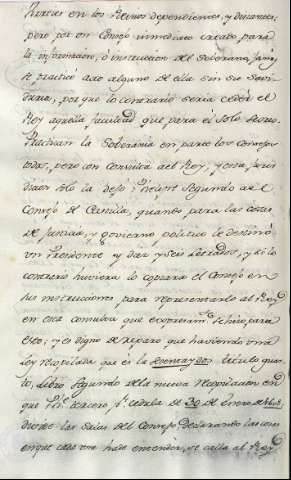 en los Reinos dependientes, y durante
pero por un Consejo inmediato creado para
la informacion, ò instruccion del Soberano, jamas
se practicò acto alguno de ella sin su Sobe
porque lo contrario seria ceder el
Rey aquella facultad que para si solo
la Soberania en parte los Consejos
todos, pero con consulta del Rey, y esta
solo la dejò Phelipe Segundo al
Consejo de Castilla, quando para las cosas
de Justicia, y govierno politico le destinò
un Presidente y diez y seis Letrados, y si lo
contrario huviera lo el Consejo en
sus instrucciones para representarlo al Rey
en esta consulta que se hizo para
esto; y es digno de reparo que haviendo una
Ley recopilada que es la sesenta y dos titulo quar
to, Libro Segundo de la nueva Recopilacion en
que Phe. tercero Pr. cedula de 30 de Enero de 1608
divide las Salas del Consejo declarando las cosas
en que cada una hade entender, se calla al Rey